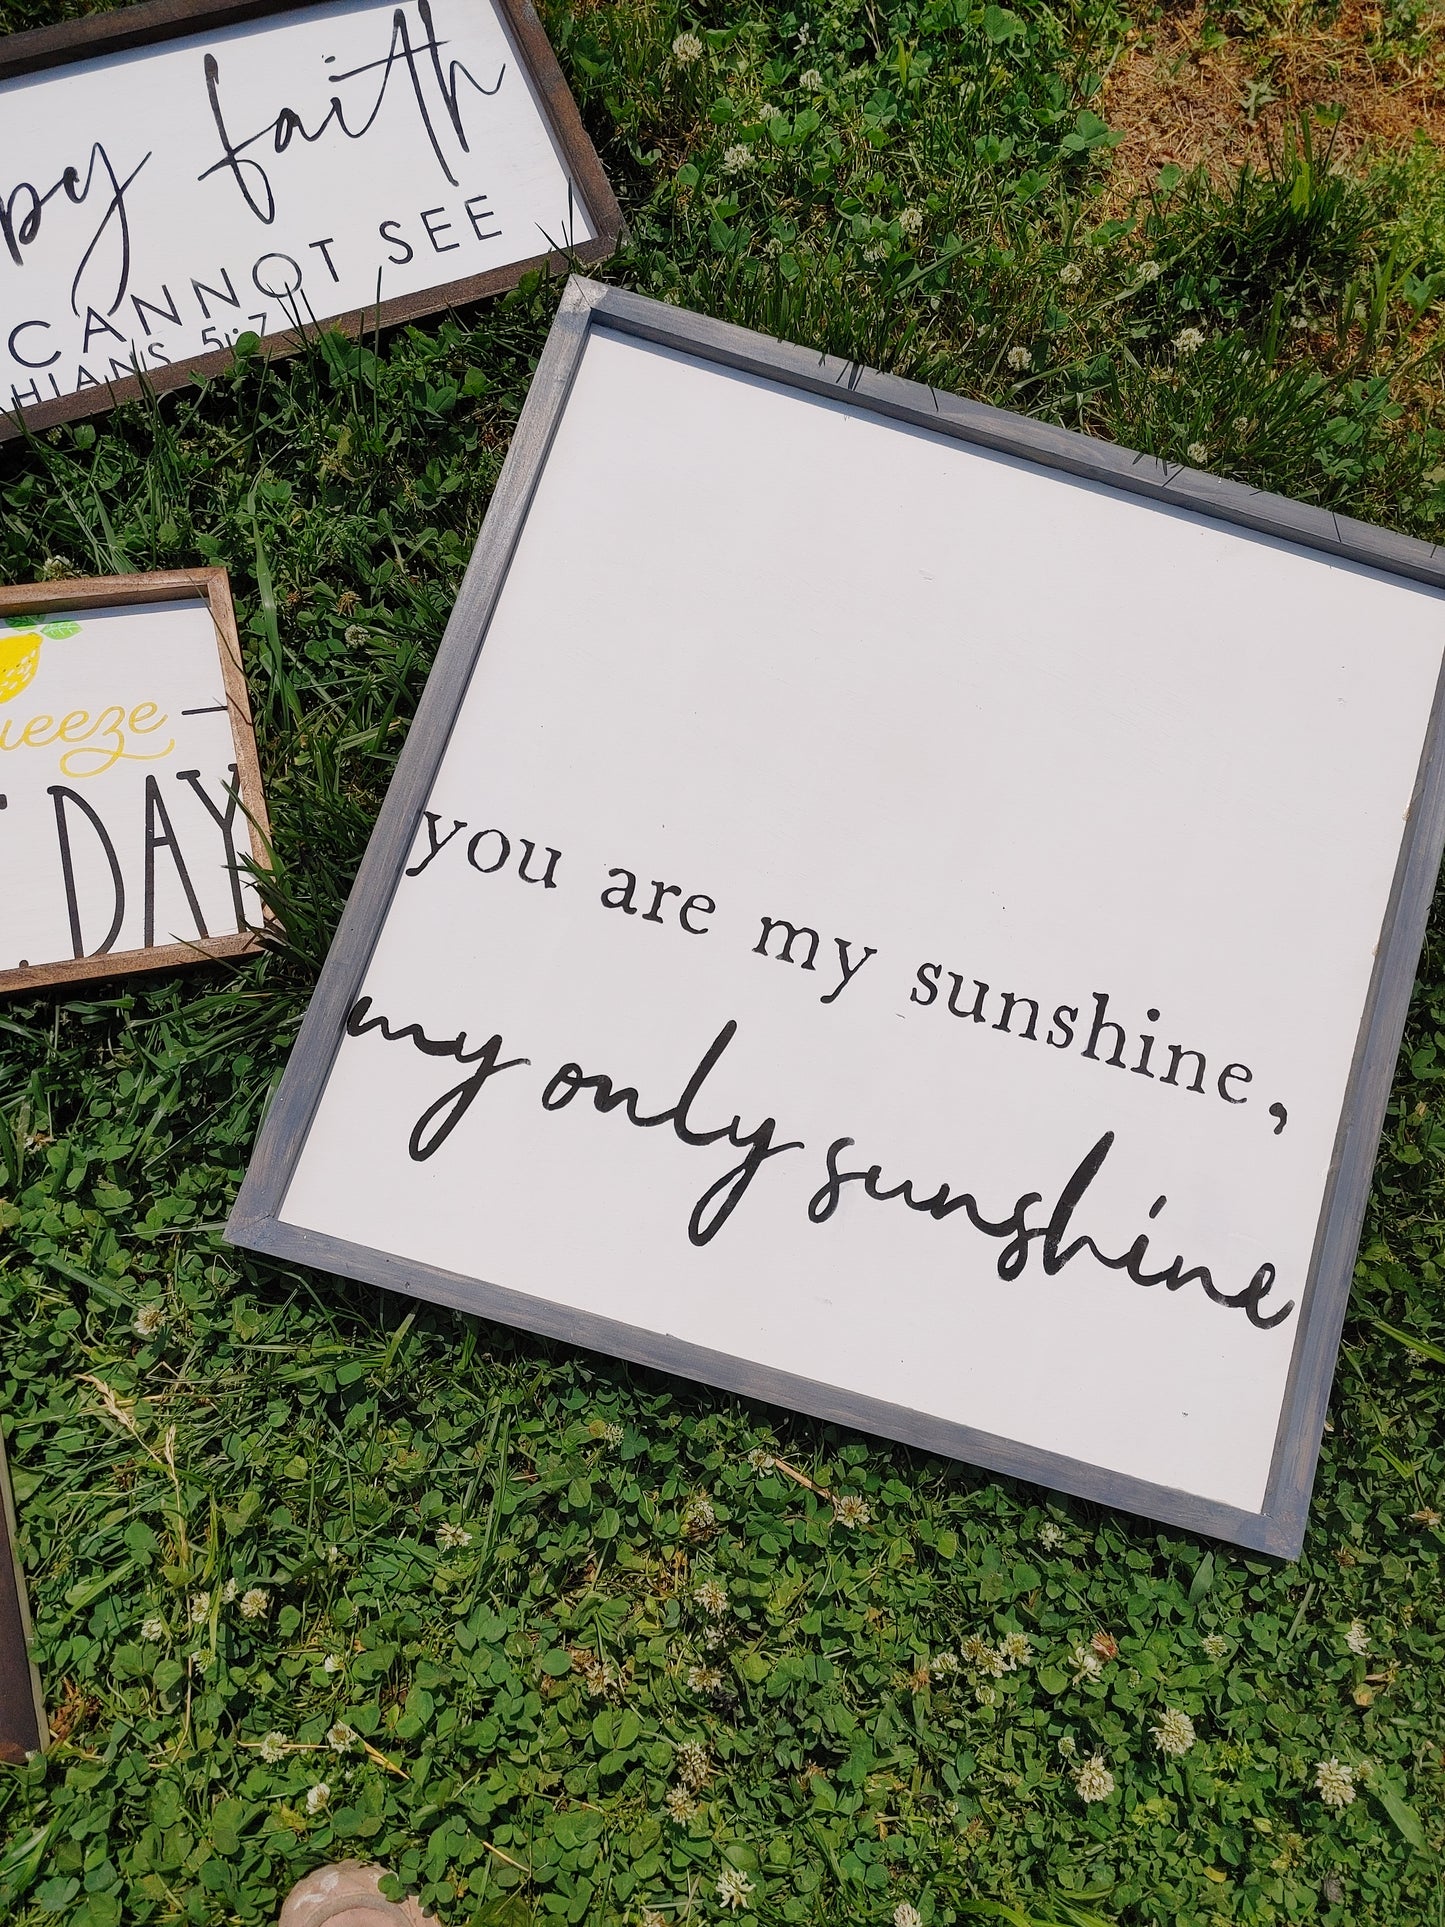 by faith
CANNOT SEE
HIANS 5:7
ueeze
DAY
you are my sunshine,
my only sunshine